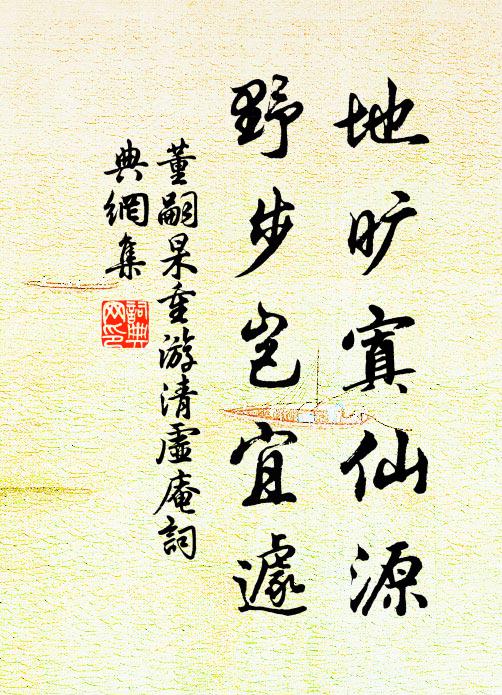 地旷寘仙源
野步岂宜遽
董嗣杲重游清虚庵词
典網集
詞典网印